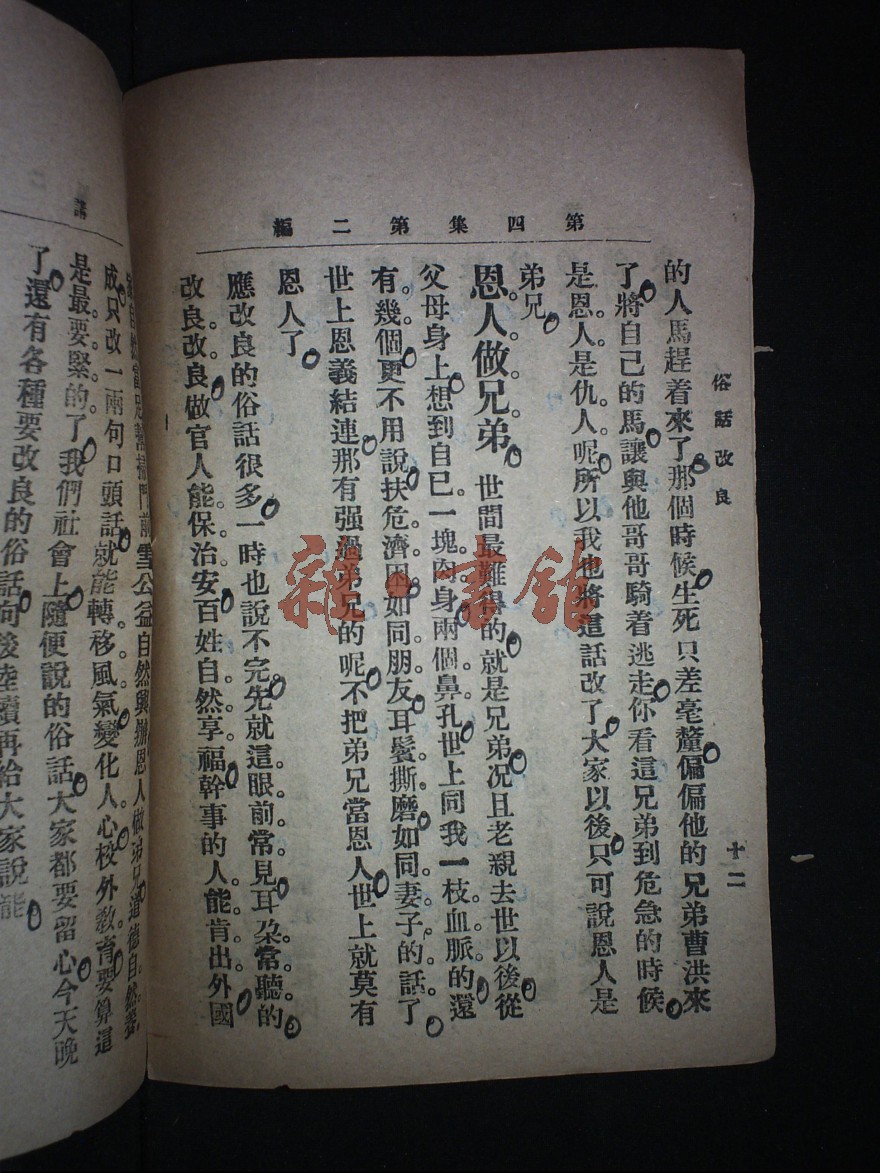 第四集第二編
俗話改良
十二
的人馬趕着來了那個時候生死只差毫釐偏偏他的兄弟曹洪來
了將自己的馬讓與他哥哥騎着逃走你看這兄弟到危急的時候
是恩人是仇人呢所以我也將這話改了大家以後只可說恩人是
弟兄
恩人做兄弟 世間最難得的就是兄弟況且老親去世以後從
父母身上想到自己一塊肉身兩個鼻孔世上同我一枝血脈的還
有幾個更不用說扶危濟困如同朋友耳鬢撕磨如同妻子的話了
世上恩義結連那有强過弟兄的呢不把弟兄當恩人世上就莫有
恩人了
應改良的俗話很多一時也說不完先就這眼前常見耳朶常聽的
改良改良做官人能保治安百姓自然享福幹事的人能肯出外國
門前雪公益自然興辦恩人做弟兄道德自然
成只改一兩句口頭話就能轉移風氣變化人心校外教育要算這
是最要緊的了我們社會上隨便說的俗話大家都要留心今天晚
了還有各種要改良的俗話向後陸續再給大家說
講
雜·書館